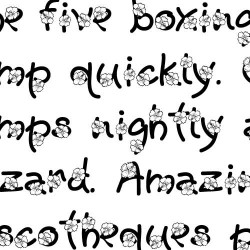 e five boxing
mp quickly.
mps nightly a
zard. Amazin
scotheques